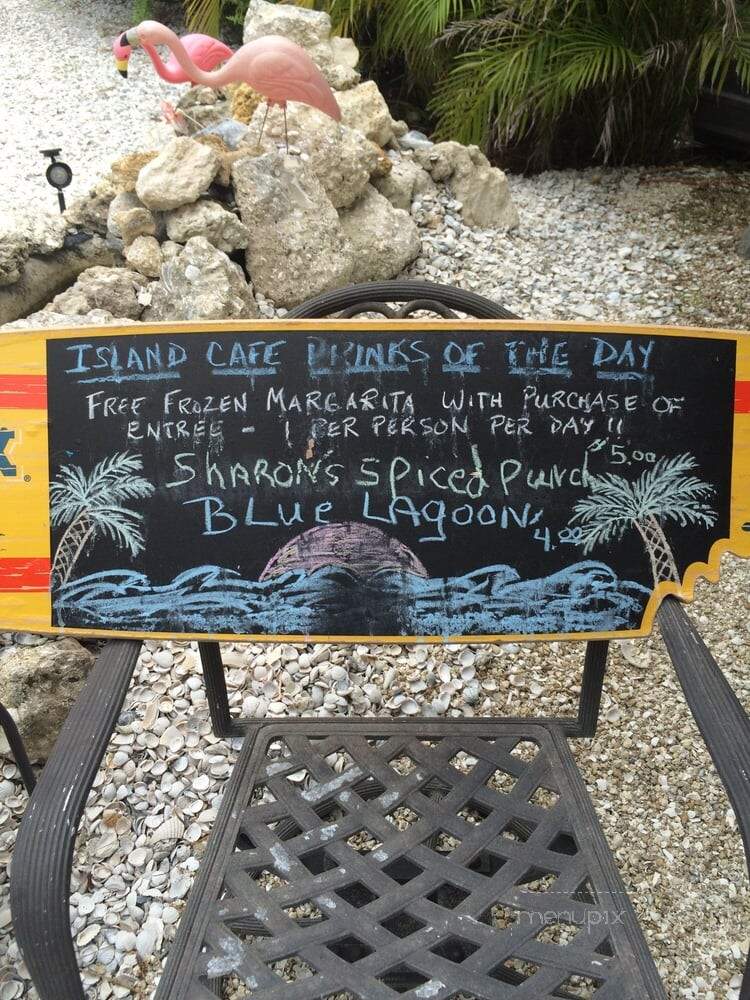 ISLAND CAFE DRINKS OF THE DAY
FREE FROZEN MARGARITA WITH PURCHASE OF
ENTREE - 1 PER PERSON PER DAY !!
SHARON'S SPiced Punch $5.00
BLUe LAgOON 4.00
menupix